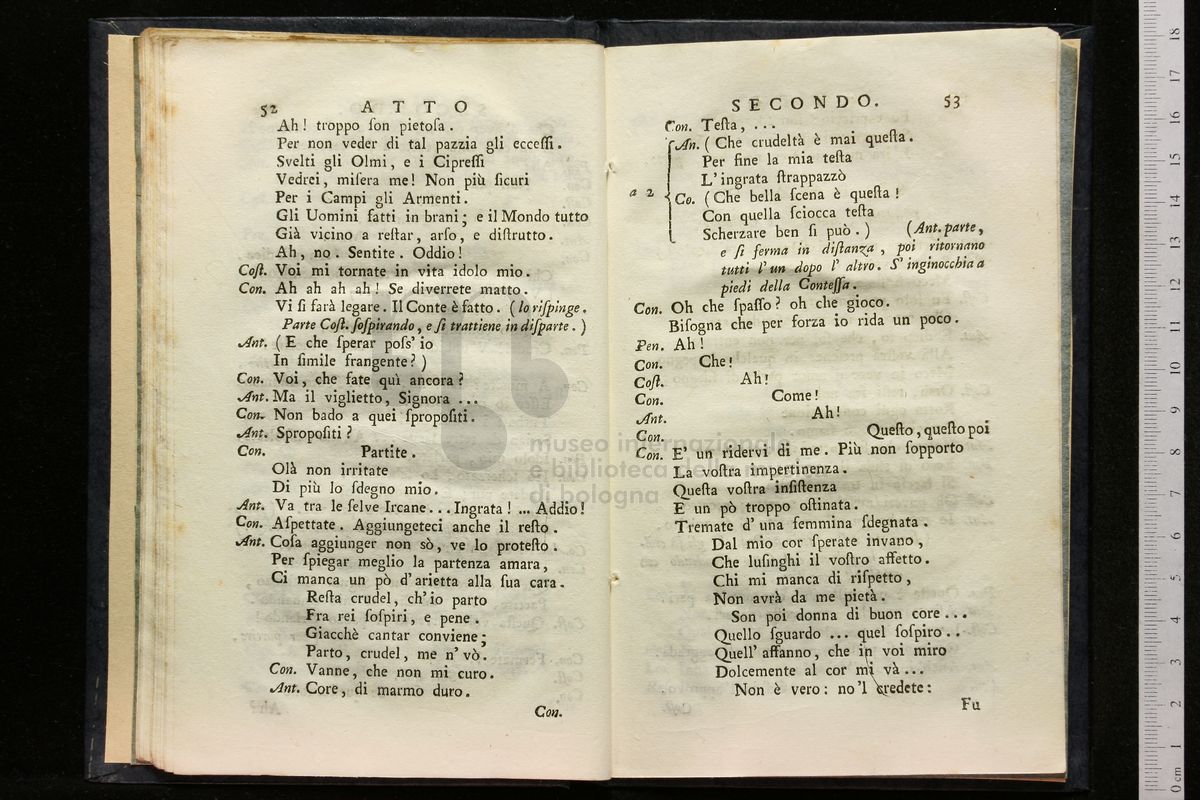 52 ATTO
Ah! troppo ſon pietoſa.
Per non veder di tal pazzia gli ecceſſi.
Svelti gli Olmi, e i Cipreſſi
Vedrei, miſera me! Non più ſicuri
Per i Campi gli Armenti.
Gli Uomini fatti in brani; e il Mondo tutto
Già vicino a reſtar, arſo, e diſtrutto.
Ah, no. Sentite. Oddio!
Coſt. Voi mi tornate in vita idolo mio.
Con. Ah ah ah ah! Se diverrete matto.
Vi ſi farà legare. Il Conte è fatto. (lo riſpinge.
Parte Coſt. ſoſpirando, e ſi trattiene in diſparte.)
Ant. (E che ſperar poſs' io
In ſimile frangente?)
Con. Voi, che fate quì ancora?
Ant. Ma il viglietto, Signora ...
Con. Non bado a quei ſpropoſiti.
Ant. Spropoſiti?
Con. Partite.
Olà non irritate
Di più lo ſdegno mio.
Ant. Va tra le ſelve Ircane... Ingrata! ... Addio!
Con. Aſpettate. Aggiungeteci anche il reſto.
Ant. Coſa aggiunger non sò, ve lo proteſto.
Per ſpiegar meglio la partenza amara,
Ci manca un pò d'arietta alla ſua cara.
Reſta crudel, ch'io parto
Fra rei ſoſpiri, e pene.
Giacchè cantar conviene;
Parto, crudel, me n' vò.
Con. Vanne, che non mi curo.
Ant. Core, di marmo duro.
Con.
SECONDO. 53
Con. Teſta, ...
An. (Che crudeltà è mai queſta.
Per fine la mia teſta
L'ingrata ſtrappazzò
a 2
Co. (Che bella ſcena è queſta!
Con quella ſciocca teſta
Scherzare ben ſi può.) (Ant. parte,
e ſi ferma in diſtanza, poi ritornano
tutti l'un dopo l'altro. S'inginocchia a
piedi della Conteſſa.
Con. Oh che ſpaſſo? oh che gioco.
Biſogna che per forza io rida un poco.
Pen. Ah!
Con. Che!
Coſt. Ah!
Con. Come!
Ant. Ah!
Con. Queſto, queſto poi
Con. E' un ridervi di me. Più non ſopporto
La voſtra impertinenza.
Queſta voſtra inſiſtenza
E un pò troppo oſtinata.
Tremate d'una femmina ſdegnata.
Dal mio cor ſperate invano,
Che luſinghi il voſtro affetto.
Chi mi manca di riſpetto,
Non avrà da me pietà.
Son poi donna di buon core...
Quello ſguardo ... quel ſoſpiro..
Quell' affanno, che in voi miro
Dolcemente al cor mi và...
Non è vero: no'l credete:
Fu
museo internazionale
e biblioteca della musica
di bologna
0 cm 1 2 3 4 5 6 7 8 9 10 11 12 13 14 15 16 17 18